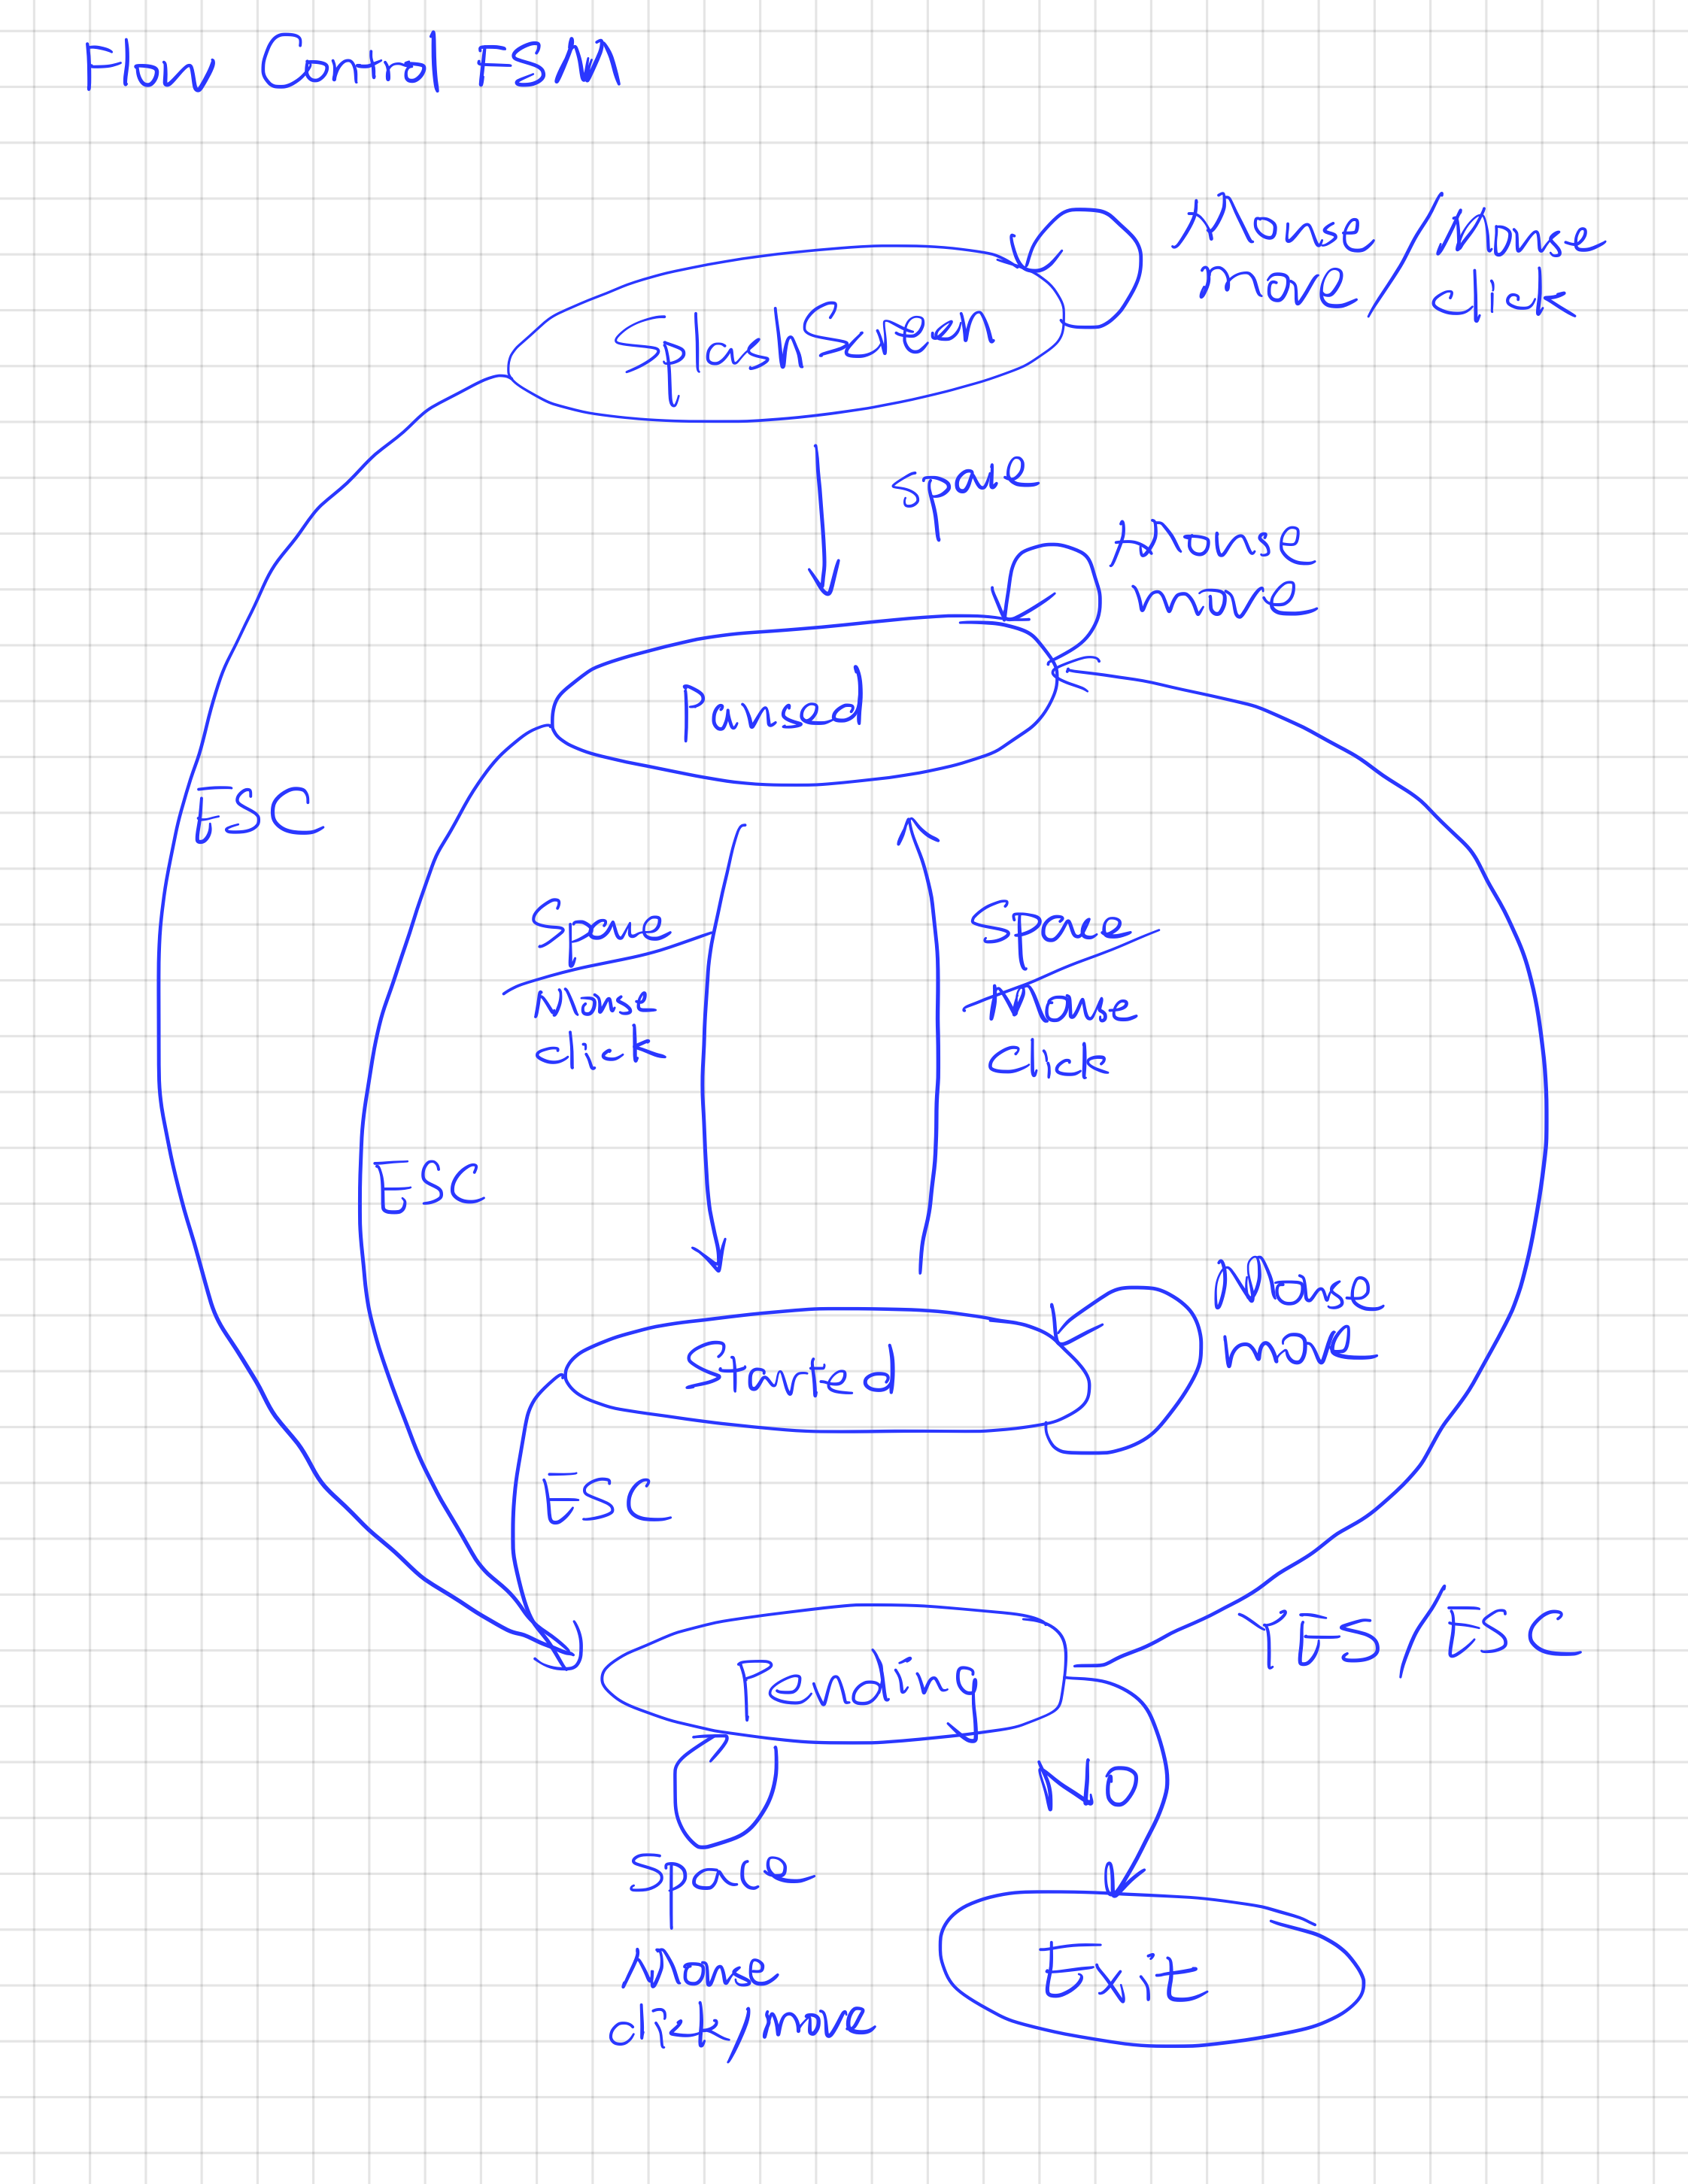 Flow Control FSM
Mouse move / Mouse click
SplashScreen
space
Mouse
move
Paused
ESC
Space
Mouse
click
Space
Mouse
click
ESC
Mouse
move
Started
ESC
YES/ESC
Pending
NO
Space
Mouse
click/move
Exit